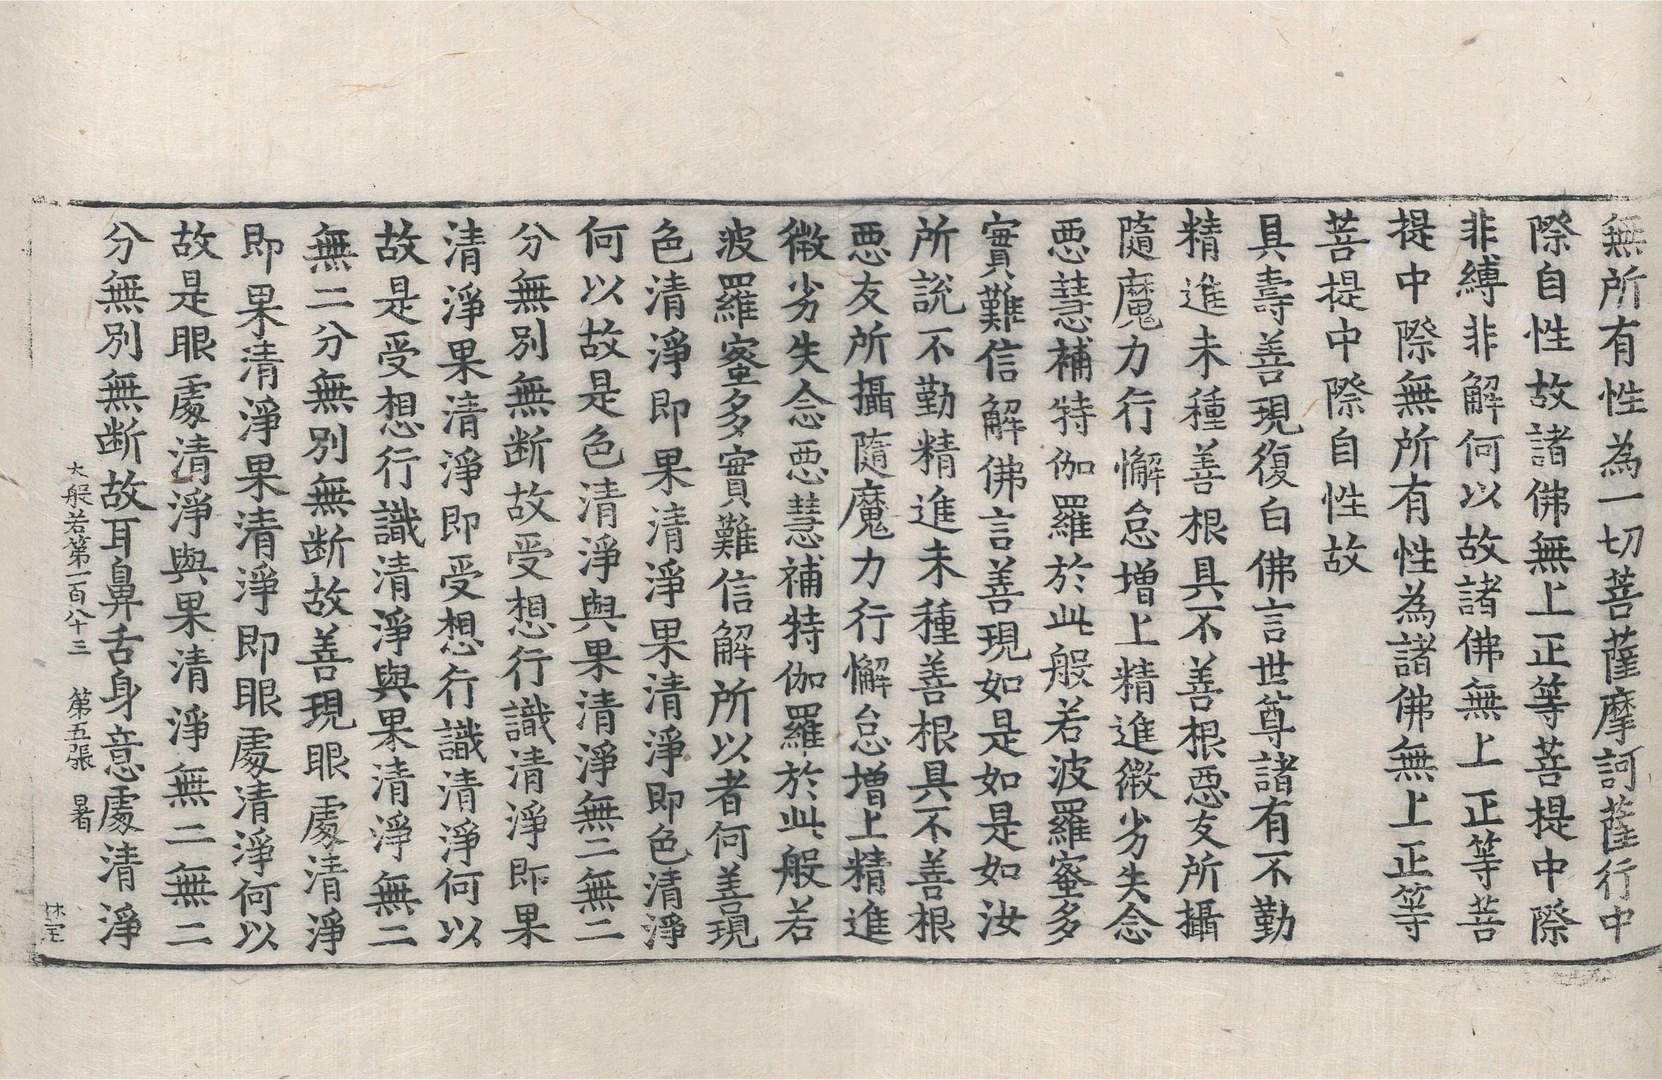 無所有性為一切菩薩摩訶薩行中
際自性故諸佛無上正等菩提中際
非縛非解何以故諸佛無上正等菩
提中際無所有性為諸佛無上正等
菩提中際自性故
具壽善現復白佛言世尊諸有不勤
精進未種善根具不善根惡友所攝
隨魔力行懈怠增上精進微劣失念
惡慧補特伽羅於此般若波羅蜜多
實難信解佛言善現如是如是如汝
所說不勤精進未種善根具不善根
惡友所攝隨魔力行懈怠增上精進
微劣失念惡慧補特伽羅於此般若
波羅蜜多實難信解所以者何善現
色清淨即果清淨果清淨即色清淨
何以故是色清淨與果清淨無二無二
分無別無断故受想行識清淨即果
清淨果清淨即受想行識清淨何以
故是受想行識清淨與果清淨無二
無二分無別無断故善現眼處清淨
即果清淨果清淨即眼處清淨何以
故是眼處清淨與果清淨無二無二
分無別無断故耳鼻舌身意處清淨
大般若第一百八十三 第五張 暑